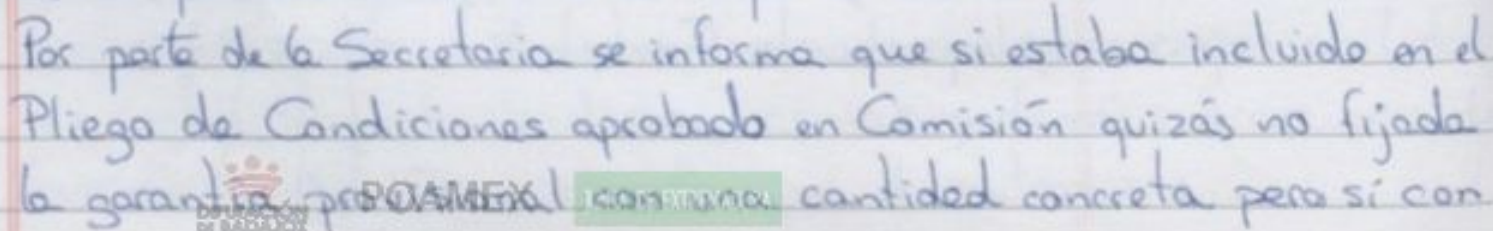 Por parte de la Secretaria se informa que si estaba incluido en el
Pliego de Condiciones aprobado en Comisión quizás no fijada
la garantía con una cantidad concreta pero sí con
POAMEX